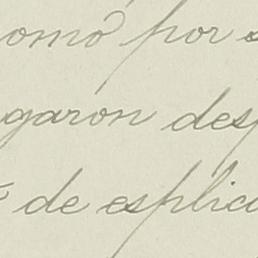 omó por
garon des
de esplica